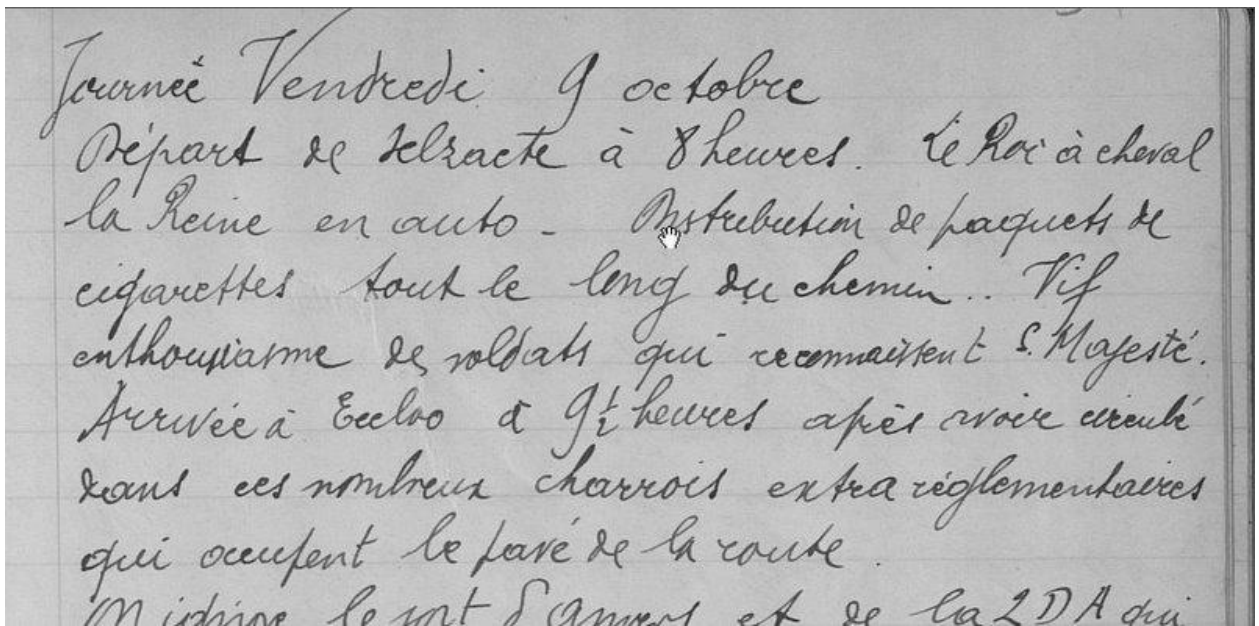 Journée Vendredi 9 octobre
Départ de Selzaete à 8 heures. Le Roi à cheval
la Reine en auto - Distribution de paquets de
cigarettes tout le long du chemin.. Vif
enthousiasme de soldats qui reconnaissent S. Majesté.
Arrivée à Eecloo à 9 1/2 heures après avoir circulé
dans ces nombreux charrois extra réglementaires
qui occupent le pavé de la route.
le sort d'Anvers et de la 2 DA qui